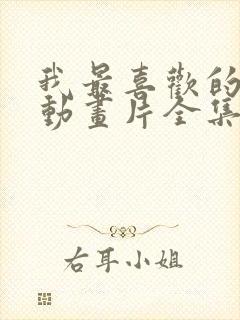 我最喜歡的
動畫片全集
右耳小姐